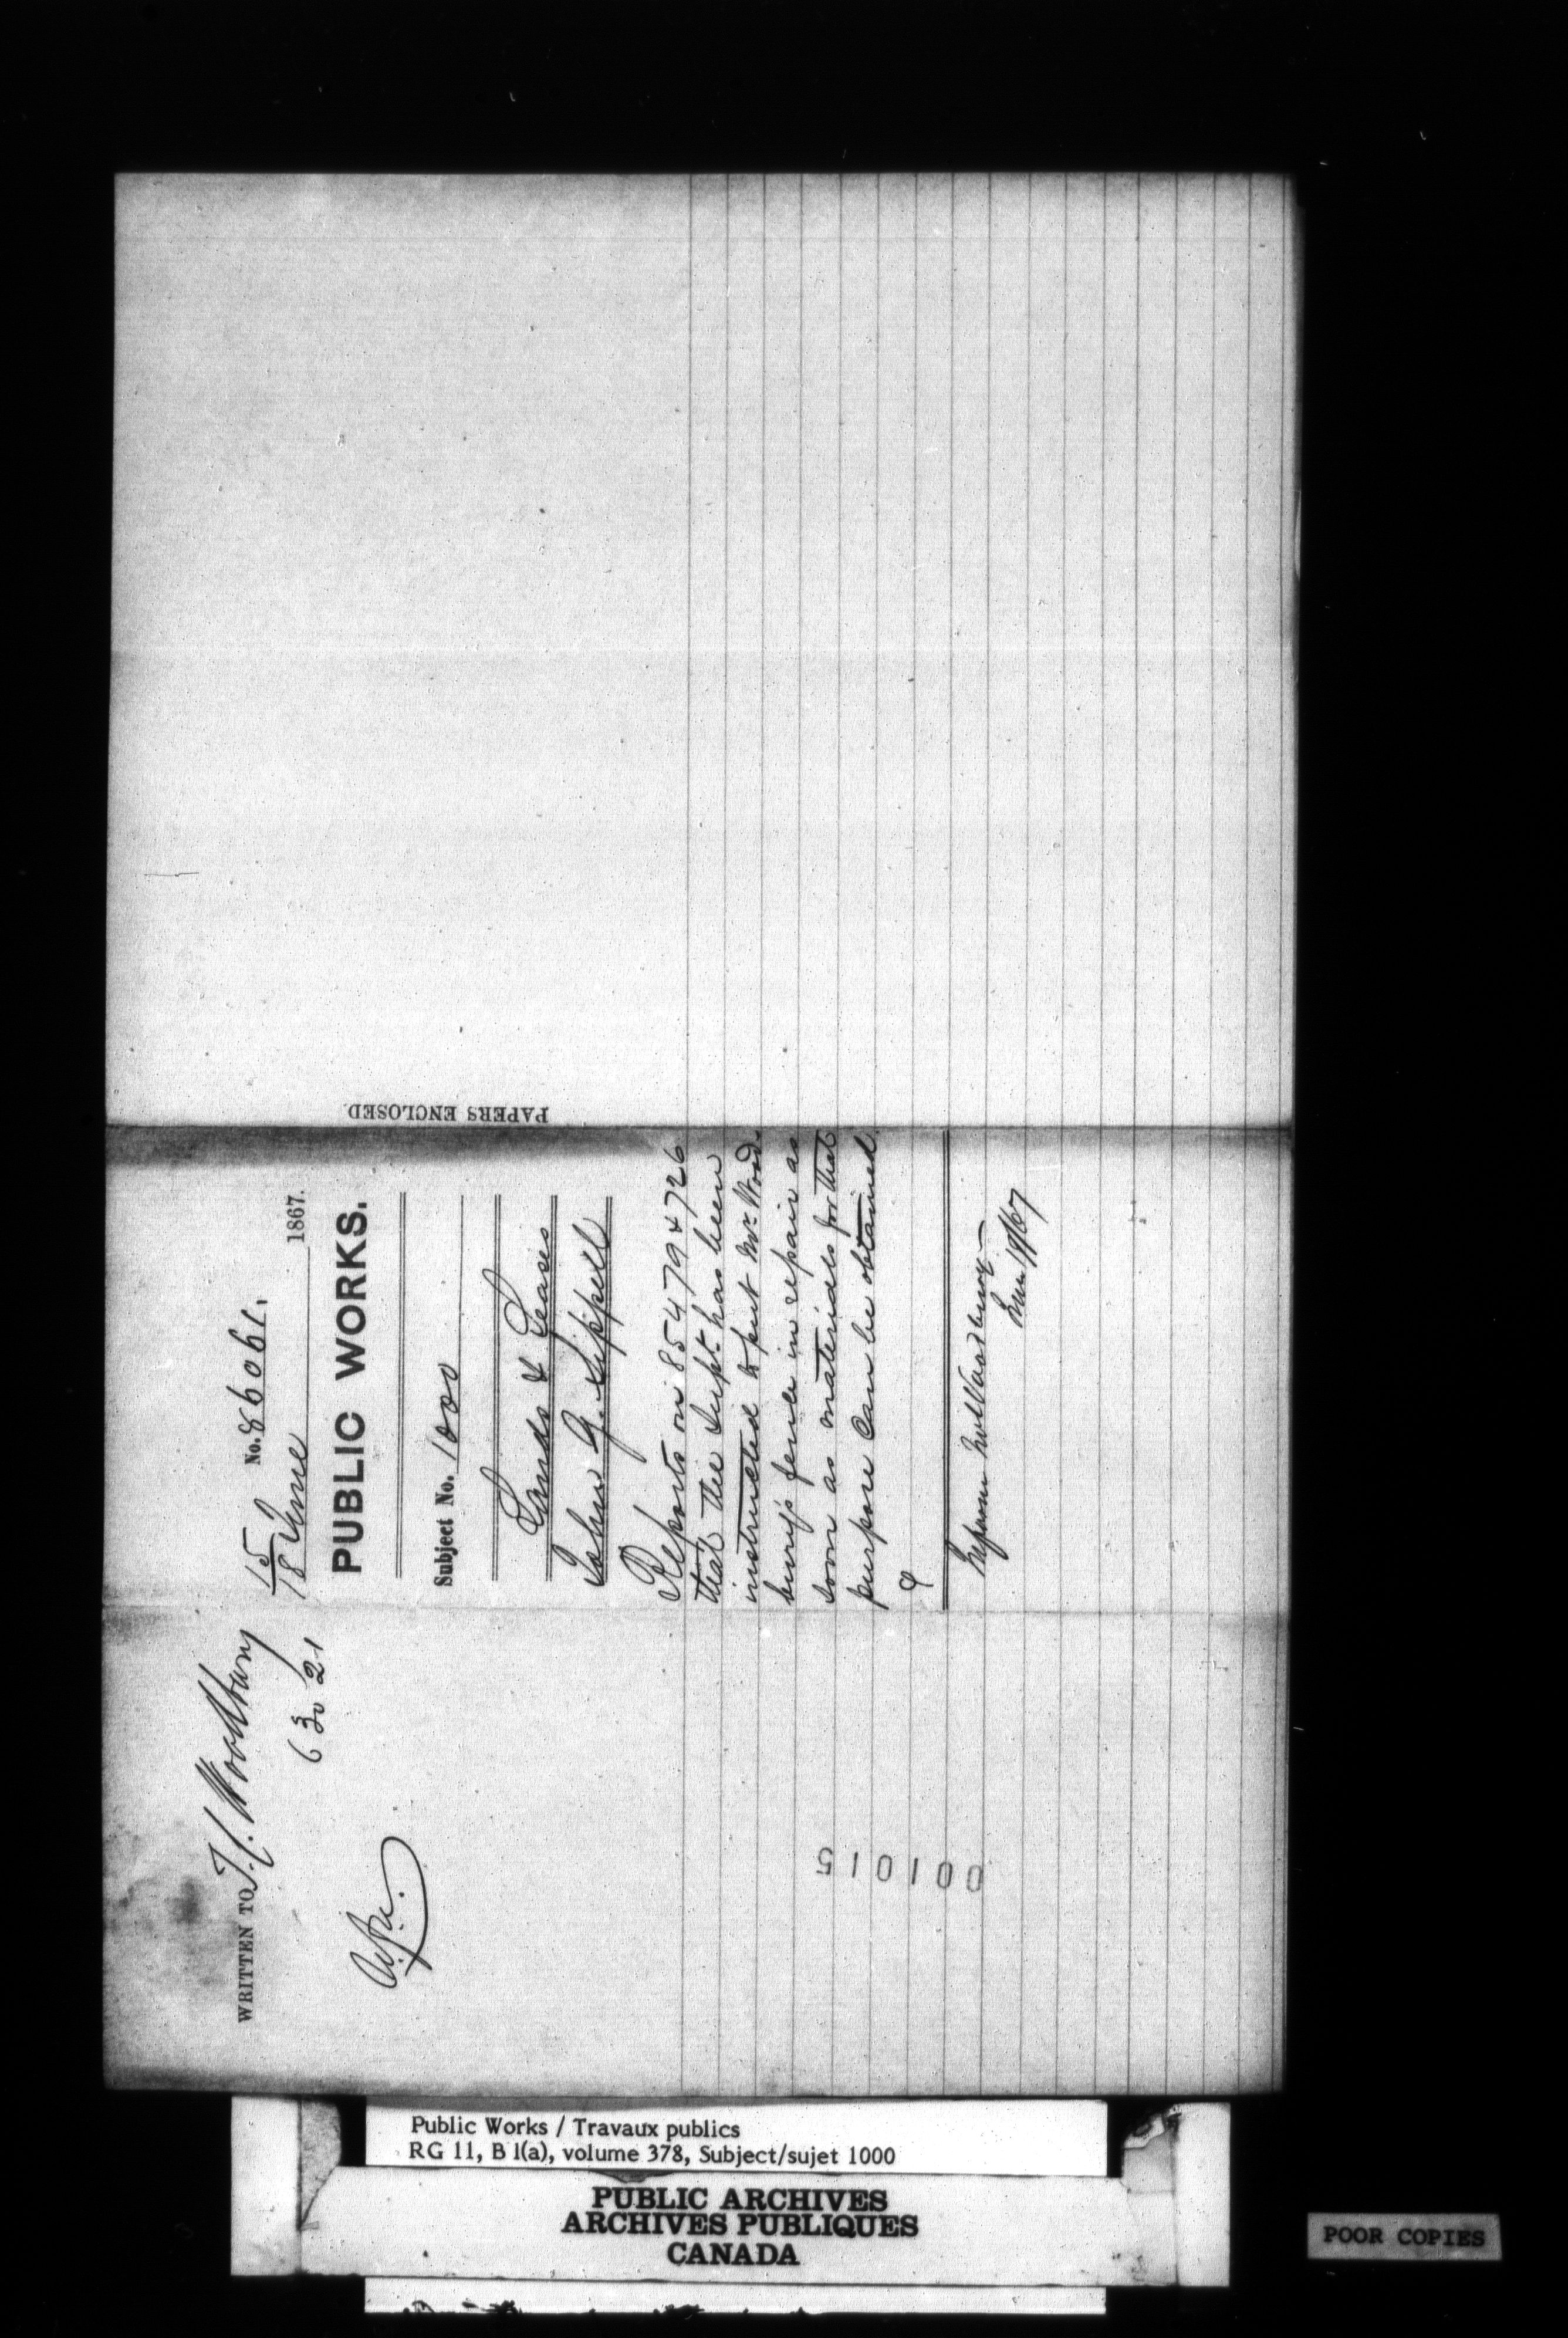 WRITTEN TO T. C. Woodbury
6 30 21
15
18 June 1867.
No. 86061.
PUBLIC WORKS.
Subject No. 1000
Lands & Leases
John G. Sippell
Reports on 85479 & 726
that the Supt. has been
instructed to put Mr. Wood-
bury's fence in repair as
soon as materials for that
purpose can be obtained.
Inform Mr Woodbury
June 19/67
PAPERS ENCLOSED
001015
Public Works / Travaux publics
RG 11, B 1(a), volume 378, Subject/sujet 1000
PUBLIC ARCHIVES
ARCHIVES PUBLIQUES
CANADA
POOR COPIES